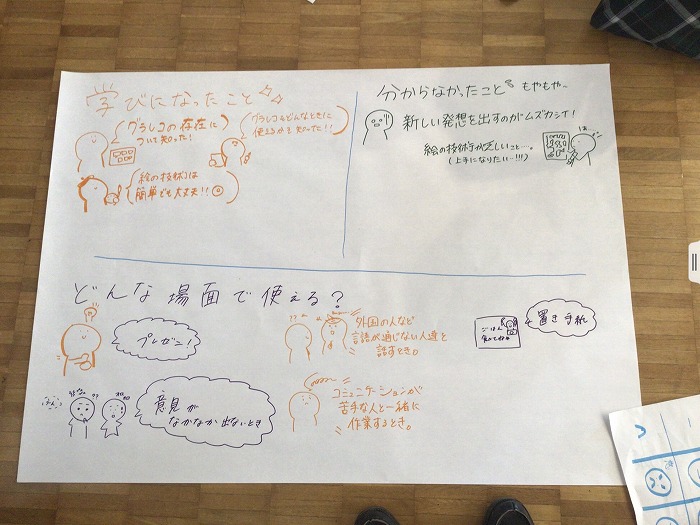 学びになったこと
グラレコの存在に
ついて知った!
グラレコをどんなときに
使えるかを知った!!
絵の技術は
簡単でも大丈夫!!
分からなかったこと もやもや〜
新しい発想を出すのがムズカシイ!
絵の技術が乏しいこと…。
(上手になりたい…!!!)
どんな場面で使える?
プレゼン!
外国の人など
言語が通じない人達と
話すとき。
ごはん
置き手紙
意見が
なかなか出ないとき
コミュニケーションが
苦手な人と一緒に
作業するとき。